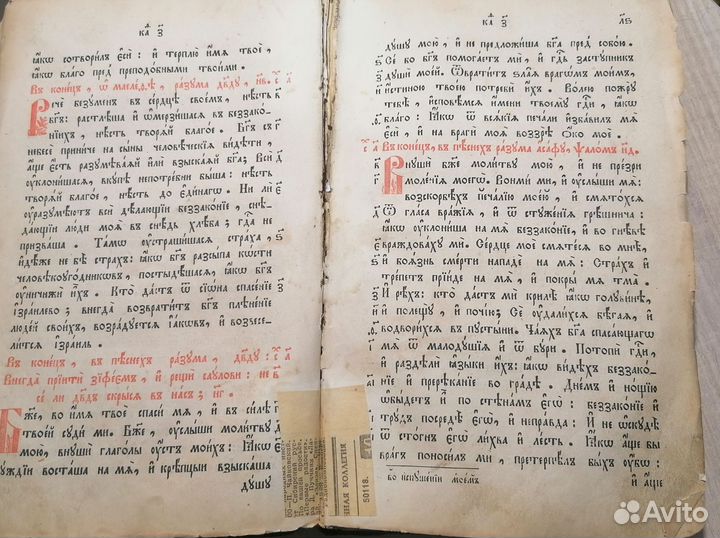 КА҃ З҃
ꙗ҆́кѡ сотвори́лъ є҆сѝ : и҆ терплю̀ и҆́мѧ твоѐ ,
ꙗ҆́кѡ бла́го пред̾ преподо́бными твои́ми .
Въ коне́цъ , ѡ҆ маеле́ѳѣ , ра́зума дв҃дꙋ , нв҃ .
Речѐ безꙋ́менъ въ се́рдцѣ свое́мъ , нѣ́сть
бг҃ъ : растлѣ́ша и҆ ѡ҆мерзи́шасѧ въ беззако́-
нїихъ , нѣ́сть творѧ́й благо́е . Бг҃ъ съ
небесѐ прини́че на сы́ны человѣ́ческїѧ ви́дѣти ,
а҆́ще є҆́сть разꙋмѣва́ѧй и҆лѝ взыска́ѧй бг҃а ; Всѝ
ᲂу҆клони́шасѧ , вкꙋ́пѣ непотре́бни бы́ша : нѣ́сть
творѧ́й благо́е , нѣ́сть до є҆ди́нагѡ . Ни лѝ
ᲂу҆разꙋмѣ́ютъ всѝ дѣ́лающїи беззако́нїе , снѣ-
да́ющїи лю́ди моѧ̑ въ снѣ́дь хлѣ́ба ; гдⷭ҇а не
призва́ша . Та́мѡ ᲂу҆страши́шасѧ стра́ха ,
и҆дѣ́же не бѣ̀ стра́хъ : ꙗ҆́кѡ бг҃ъ разсы́па кѡ́сти
человѣкоꙋго́дникѡвъ , постыдѣ́шасѧ , ꙗ҆́кѡ бг҃ъ
ᲂу҆ничижѝ и҆̀хъ . Кто̀ да́стъ ѿ сїѡ́на спасе́нїе
і҆и҃лево ; внегда̀ возврати́тъ бг҃ъ плѣне́нїе
люде́й свои́хъ , возра́дꙋетсѧ і҆а́кѡвъ , и҆ возвесе-
ли́тсѧ і҆и҃ль .
Въ коне́цъ , въ пѣ́снехъ ра́зума , дв҃дꙋ :
Внегда̀ прїитѝ зїфе́ємъ , и҆ рещѝ саꙋ́лови : не
се́ ли дв҃дъ скры́сѧ въ на́съ ; нг҃ .
Бж҃е , во и҆́мѧ твоѐ спаси́ мѧ , и҆ въ си́лѣ
твое́й сꙋди́ ми . Бж҃е , ᲂу҆слы́ши моли́твꙋ
мою̀ , внꙋшѝ глаго́лы ᲂу҆́стъ мои́хъ : Ꙗ҆́кѡ
чꙋ́ждїи воста́ша на мѧ̀ , и҆ крѣ́пцыи взыска́ша
дꙋ́шꙋ
КА҃ З҃ ЛѢ
дꙋ́шꙋ мою̀ , и҆ не предложи́ша бг҃а пред̾ собо́ю .
Сѐ бо бг҃ъ помога́етъ ми , и҆ гдⷭ҇ь застꙋ́пникъ
дꙋшѝ мое́й . Ѿврати́тъ ѕла̑ѧ врагѡ́мъ мои̑мъ ,
и҆́стиною твое́ю потребѝ и҆̀хъ . Во́лею пожрꙋ̀
тебѣ̀ , и҆сповѣ́мсѧ и҆́мени твоемꙋ̀ гдⷭ҇и , ꙗ҆́кѡ
бла́го : Ꙗ҆́кѡ ѿ всѧ́кїѧ печа́ли и҆зба́вилъ мѧ̀
є҆сѝ , и҆ на врагѝ моѧ̑ воззрѣ̀ ѻ҆́ко моѐ .
Въ коне́цъ , въ пѣ́снехъ ра́зума а҆са́фꙋ , ѱало́мъ н҃д .
Внꙋшѝ бж҃е моли́твꙋ мою̀ , и҆ не пре́зри
моле́нїѧ моегѡ̀ . Вонми́ ми , и҆ ᲂу҆слы́ши мѧ̀ :
возскорбѣ́хъ печа́лїю мое́ю , и҆ смѧто́хсѧ
Ѿ гла́са вра́жїѧ , и҆ ѿ стꙋже́нїѧ грѣ́шнича :
ꙗ҆́кѡ ᲂу҆клони́ша на мѧ̀ беззако́нїе , и҆ во гнѣ́вѣ
враждова́хꙋ ми . Се́рдце моѐ смѧте́сѧ во мнѣ̀ ,
и҆ боѧ́знь сме́рти нападѐ на мѧ̀ : Стра́хъ и҆
тре́петъ прїи́де на мѧ̀ , и҆ покры́ мѧ тма̀ .
И҆ рѣ́хъ : кто̀ да́стъ ми крилѣ̀ ꙗ҆́кѡ голꙋби́нѣ ,
и҆ полещꙋ̀ , и҆ почі́ю ; Сѐ ᲂу҆дали́хсѧ бѣ́гаѧ , и҆
водвори́хсѧ въ пꙋсты́ни . Ча́ѧхъ бг҃а спаса́ющагѡ
мѧ̀ ѿ малодꙋ́шїѧ и҆ ѿ бꙋ́ри . Потопѝ гдⷭ҇и ,
и҆ раздѣлѝ ꙗ҆зы́ки и҆́хъ : ꙗ҆́кѡ ви́дѣхъ беззако́-
нїе и҆ пререка́нїе во гра́дѣ . Дне́мъ и҆ но́щїю
ѡ҆бы́детъ и҆̀ по стѣна́мъ є҆гѡ̀ : беззако́нїе и҆
трꙋ́дъ посредѣ̀ є҆гѡ̀ , и҆ непра́вда : И҆ не ѡ҆скꙋдѣ̀
ѿ сто́гнъ є҆гѡ̀ ли́хва и҆ ле́сть . Ꙗ҆́кѡ а҆́ще бы
вра́гъ поноси́лъ ми , претерпѣ́лъ бы́хъ ᲂу҆́бѡ :
во искушении моемъ
и҆ а҆́ще
ННАЯ КОЛЛЕГИЯ
50118.
Avito